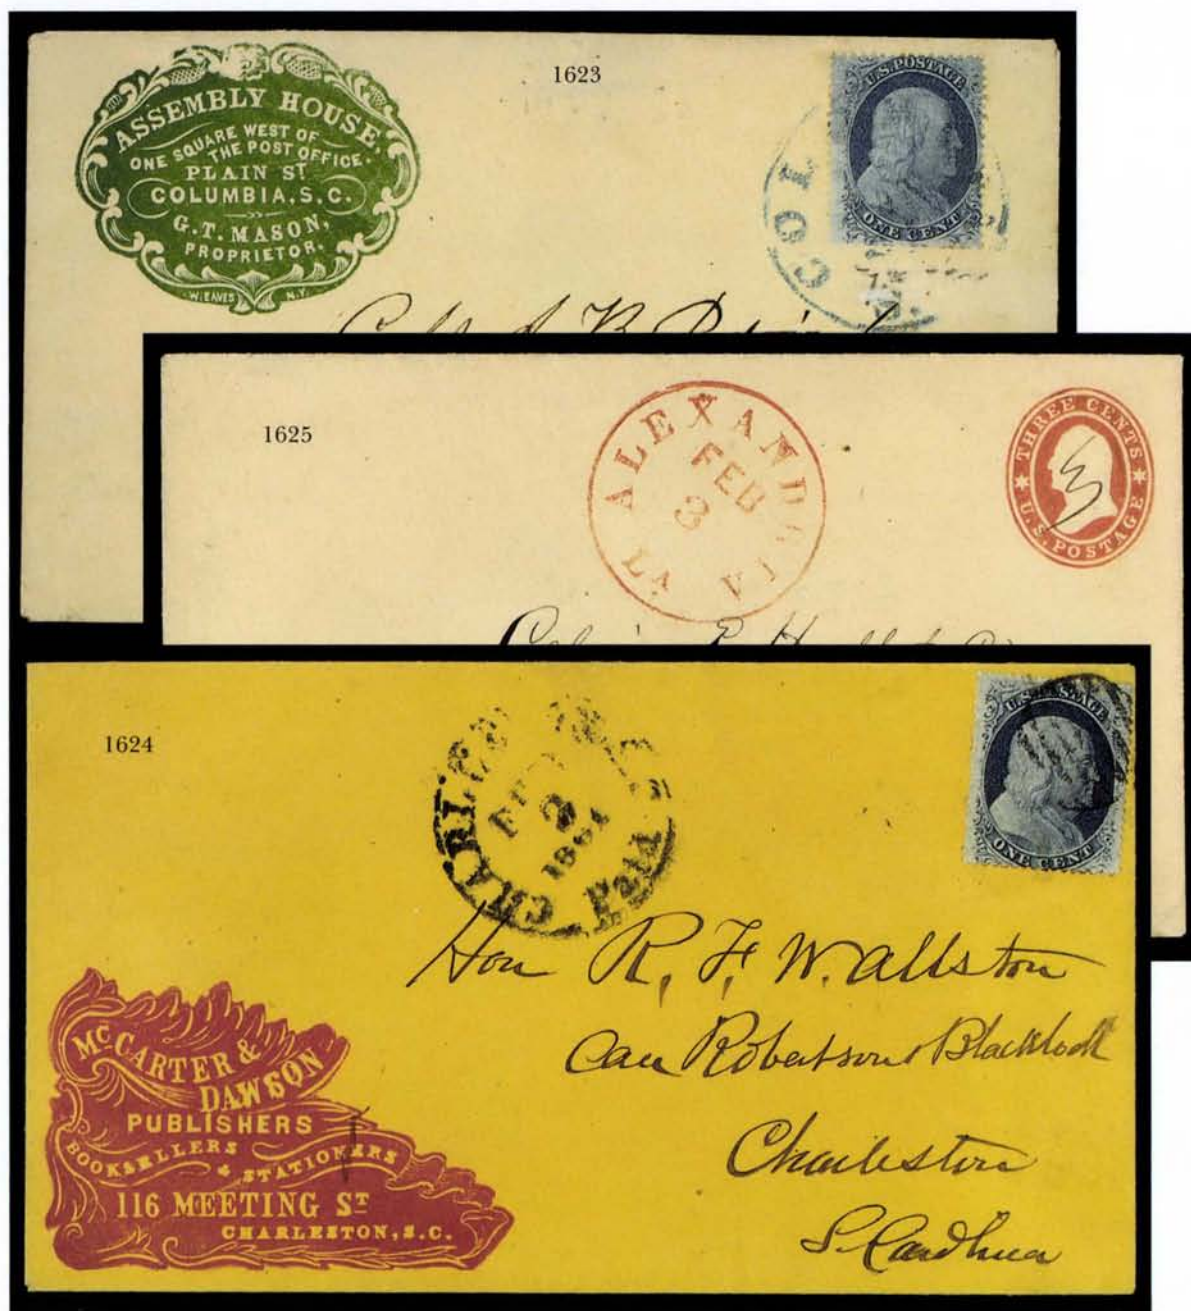 1623
ASSEMBLY HOUSE,
ONE SQUARE WEST OF
THE POST OFFICE.
PLAIN ST
COLUMBIA, S.C.
G.T. MASON,
PROPRIETOR.
W. EAVES N.Y.
U.S. POSTAGE
ONE CENT
COL
1625
ALEXANDRIA
FEB
3
LA
THREE CENTS
U.S. POSTAGE
1624
CHARLES
2
1861
Paid
U.S. POSTAGE
ONE CENT
Hon R. F. W. Allston
Care Robertson Blacklock
Charleston
S. Carolina
MC CARTER &
DAWSON
PUBLISHERS
BOOKSELLERS
& STATIONERS
116 MEETING ST
CHARLESTON, S.C.